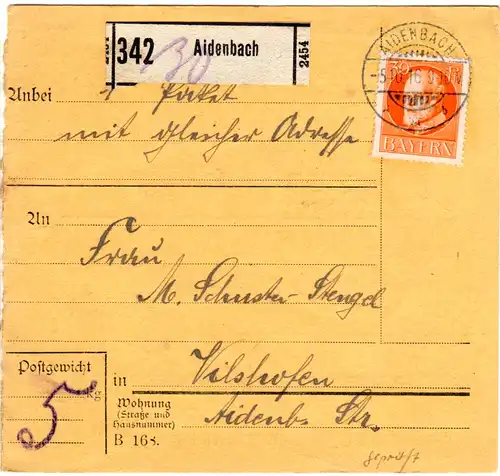 342 Aidenbach
2454
2454
30
AIDENBACH
BAYERN
Anbei 1 Paket
mit gleicher Adresse
An
Frau
M. Schuster-Stengel
Postgewicht
kg
5
in Vilshofen
Wohnung
(Straße und
Hausnummer)
Aidenb. Str.
B 168.
geprüft